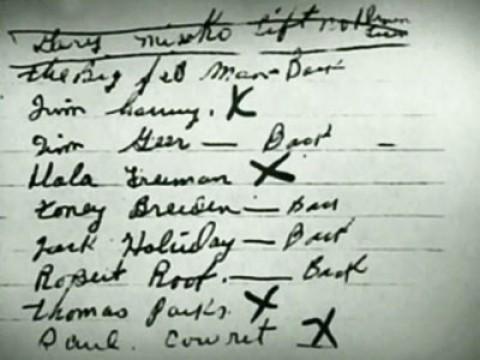 Gary Misoko left
the Big feb Man - Back
Jim hanny. X
Jim Geer — Back -
Hala Freeman X
Toney Breiden — Back
Jack Holiday — Back
Robert Roof. — Back
thomas Parks. X
Paul. Cowret X